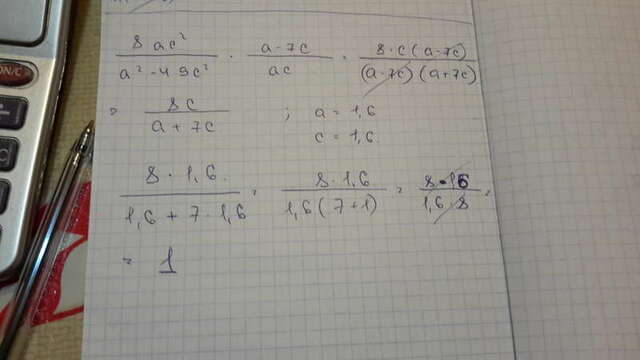 8ac² / a² - 49c² · a - 7c / ac = 8·c(a-7c) / (a-7c)(a+7c)
= 8c / a + 7c ; a = 1,6
c = 1,6.
8 · 1,6. / 1,6 + 7 · 1,6 = 8 · 1,6 / 1,6(7+1) = 8·1,6 / 1,6·8 =
= 1
ON/C
C